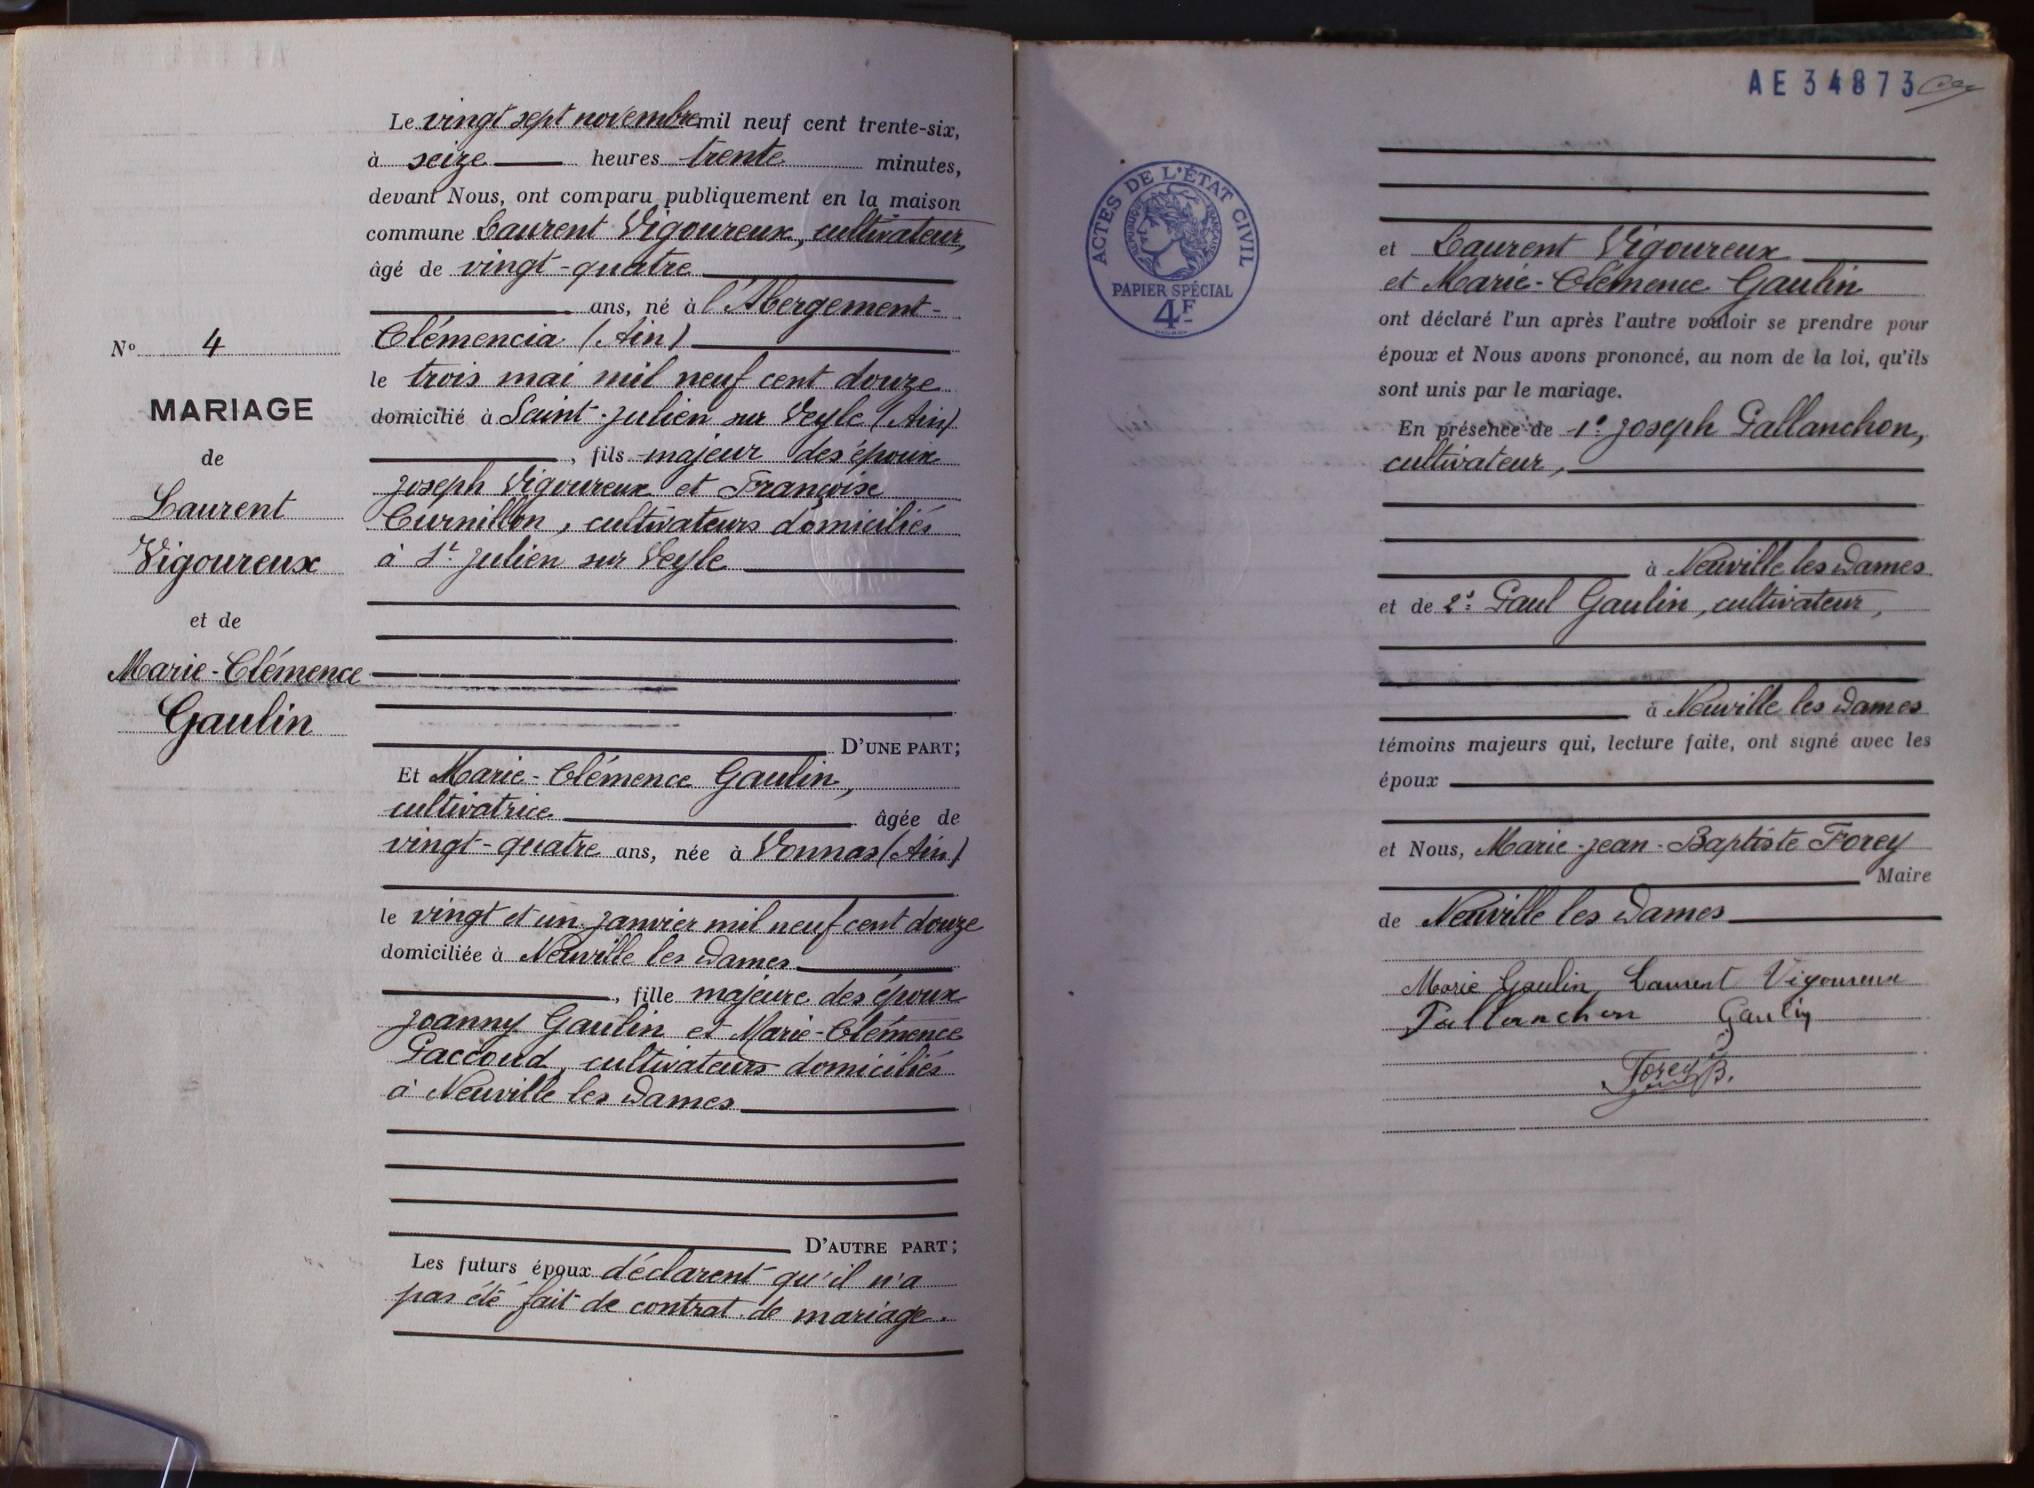 N° 4
MARIAGE
de
Laurent
Vigoureux
et de
Marie-Clémence
Gaulin
Le vingt sept novembre mil neuf cent trente-six,
à seize heures trente minutes,
devant Nous, ont comparu publiquement en la maison
commune Laurent Vigoureux, cultivateur,
âgé de vingt-quatre
ans, né à l'Abergement-
Clémencia (Ain)
le trois mai mil neuf cent douze
domicilié à Saint-Julien sur Veyle (Ain)
, fils majeur des époux
Joseph Vigoureux et Françoise
Curnillon, cultivateurs domiciliés
à St Julien sur Veyle
D'UNE PART;
Et Marie-Clémence Gaulin,
cultivatrice âgée de
vingt-quatre ans, née à Vonnas (Ain)
le vingt et un janvier mil neuf cent douze
domiciliée à Neuville les Dames
, fille majeure des époux
Joanny Gaulin et Marie-Clémence
Paccoud, cultivateurs domiciliés
à Neuville les Dames
D'AUTRE PART;
Les futurs époux déclarent qu'il n'a
pas été fait de contrat de mariage.
AE 34873
ACTES DE L'ÉTAT CIVIL
RÉPUBLIQUE FRANÇAISE
PAPIER SPÉCIAL
4F
et Laurent Vigoureux
et Marie-Clémence Gaulin
ont déclaré l'un après l'autre vouloir se prendre pour
époux et Nous avons prononcé, au nom de la loi, qu'ils
sont unis par le mariage.
En présence de 1° Joseph Pallanchon,
cultivateur,
à Neuville les Dames
et de 2° Paul Gaulin, cultivateur,
à Neuville les Dames
témoins majeurs qui, lecture faite, ont signé avec les
époux
et Nous, Marie-Jean-Baptiste Forey
Maire
de Neuville les Dames
Marie Gaulin Laurent Vigoureux
Pallanchon Gaulin
Forey B.